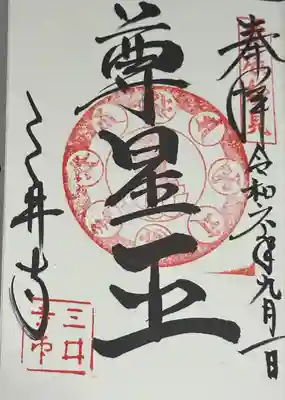 奉拝 令和六年九月一日
尊星王
三井寺
三井寺印